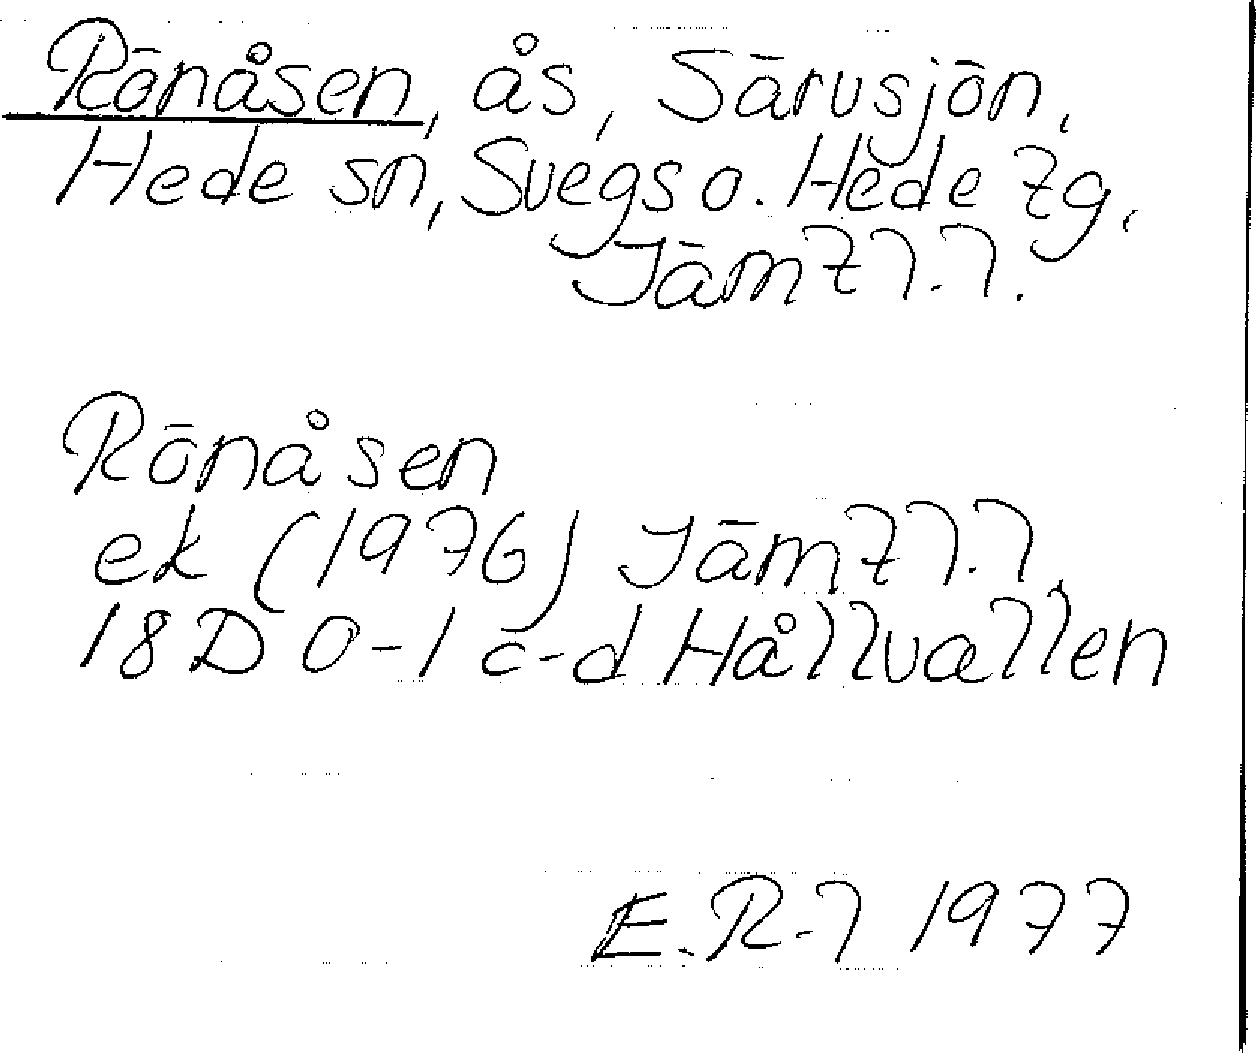 Rönåsen, ås, Särvsjön,
Hede sn, Svegs o. Hede tg,
Jämtl.l.
Rönåsen
ek (1976) Jämtl.l.
18D 0-1 c-d Hållvallen
E.R-l 1977